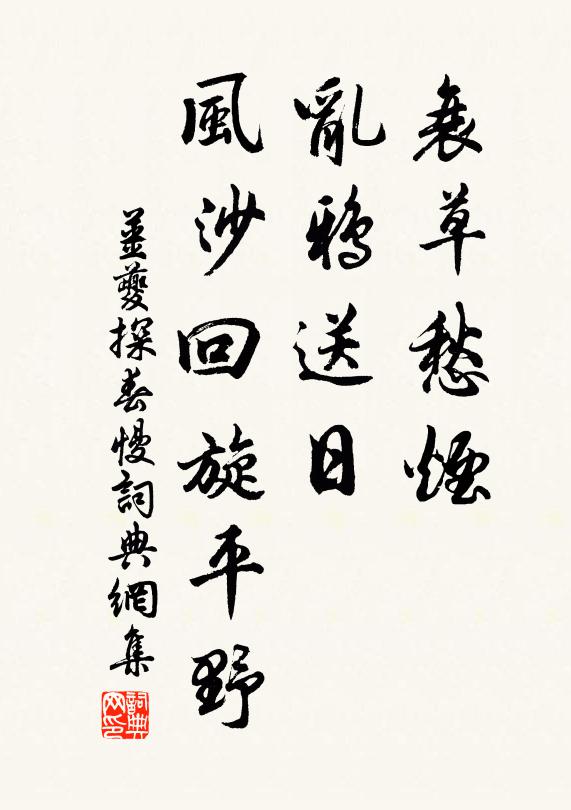 衰草愁煙
亂鴉送日
風沙回旋平野
姜夔探春慢詞典網集
詞典
网印